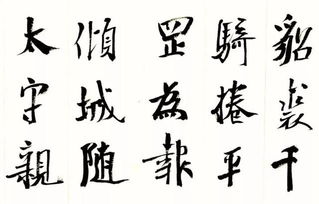 貂裘千
騎捲平
岡為報
傾城随
太守親